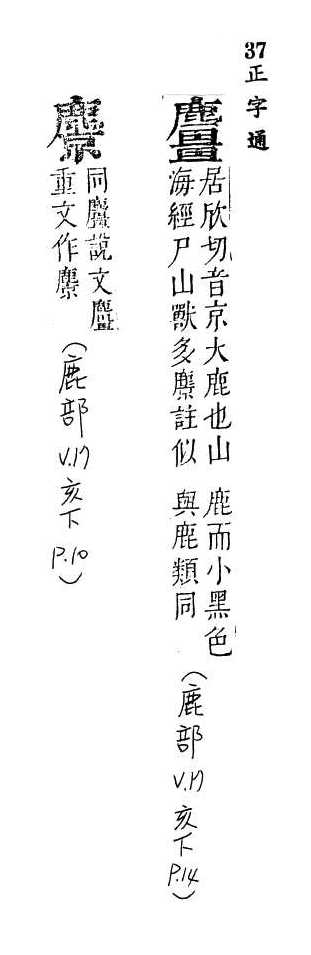 37正字通
麠
居欣切音京大鹿也山
海經尸山獸多麖註似
鹿而小黑色
與鹿類同
(鹿部 V.17 亥下 P.14)
麖
同麠說文麠
重文作麖
(鹿部 V.17 亥下 P.10)